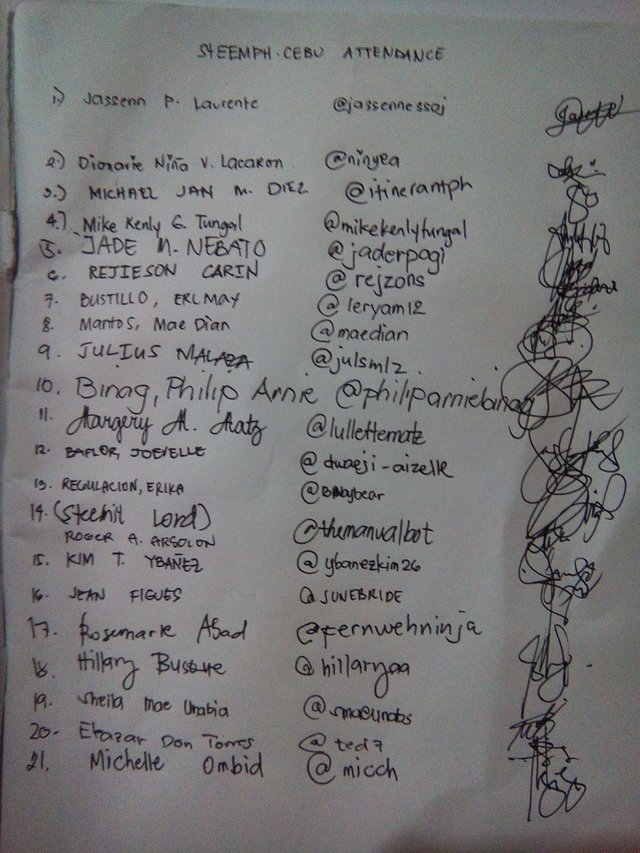 STEEMPH.CEBU ATTENDANCE
1.) Jassenn P. Laurente @jassennessaj
2.) Dionarie Niña V. Lacaron @ninyea
3.) MICHAEL JAN M. DIEZ @itinerantph
4.) Mike Kenly G. Tungal @mikekenlytungal
5. JADE M. NEBATO @jaderpogi
6. REJIESON CARIN @rejzons
7. BUSTILLO, ERLMAY @leryam12
8. Mantos, Mae Dian @maedian
9. JULIUS @julsmlz
10. Binag, Philip Arnie @philiparniebinag
11. Margery M. Matz @lullettematz
12. BAFLOR, JOEVELLE @dwaeji-aizelle
13. REGULACION, ERIKA @Babybear
14. (Steemit Lord)
ROGER A. ARGOLON @themanualbot
15. KIM T. YBAÑEZ @ybanezkim26
16. JEAN FIGUES @JUNEBRIDE
17. Rosemarie Abad @fernwehninja
18. Hillary @hillaryaa
19. Sheila Mae Unabia @smaeunabs
20. Don Torres @ted7
21. Michelle Ombid @micch